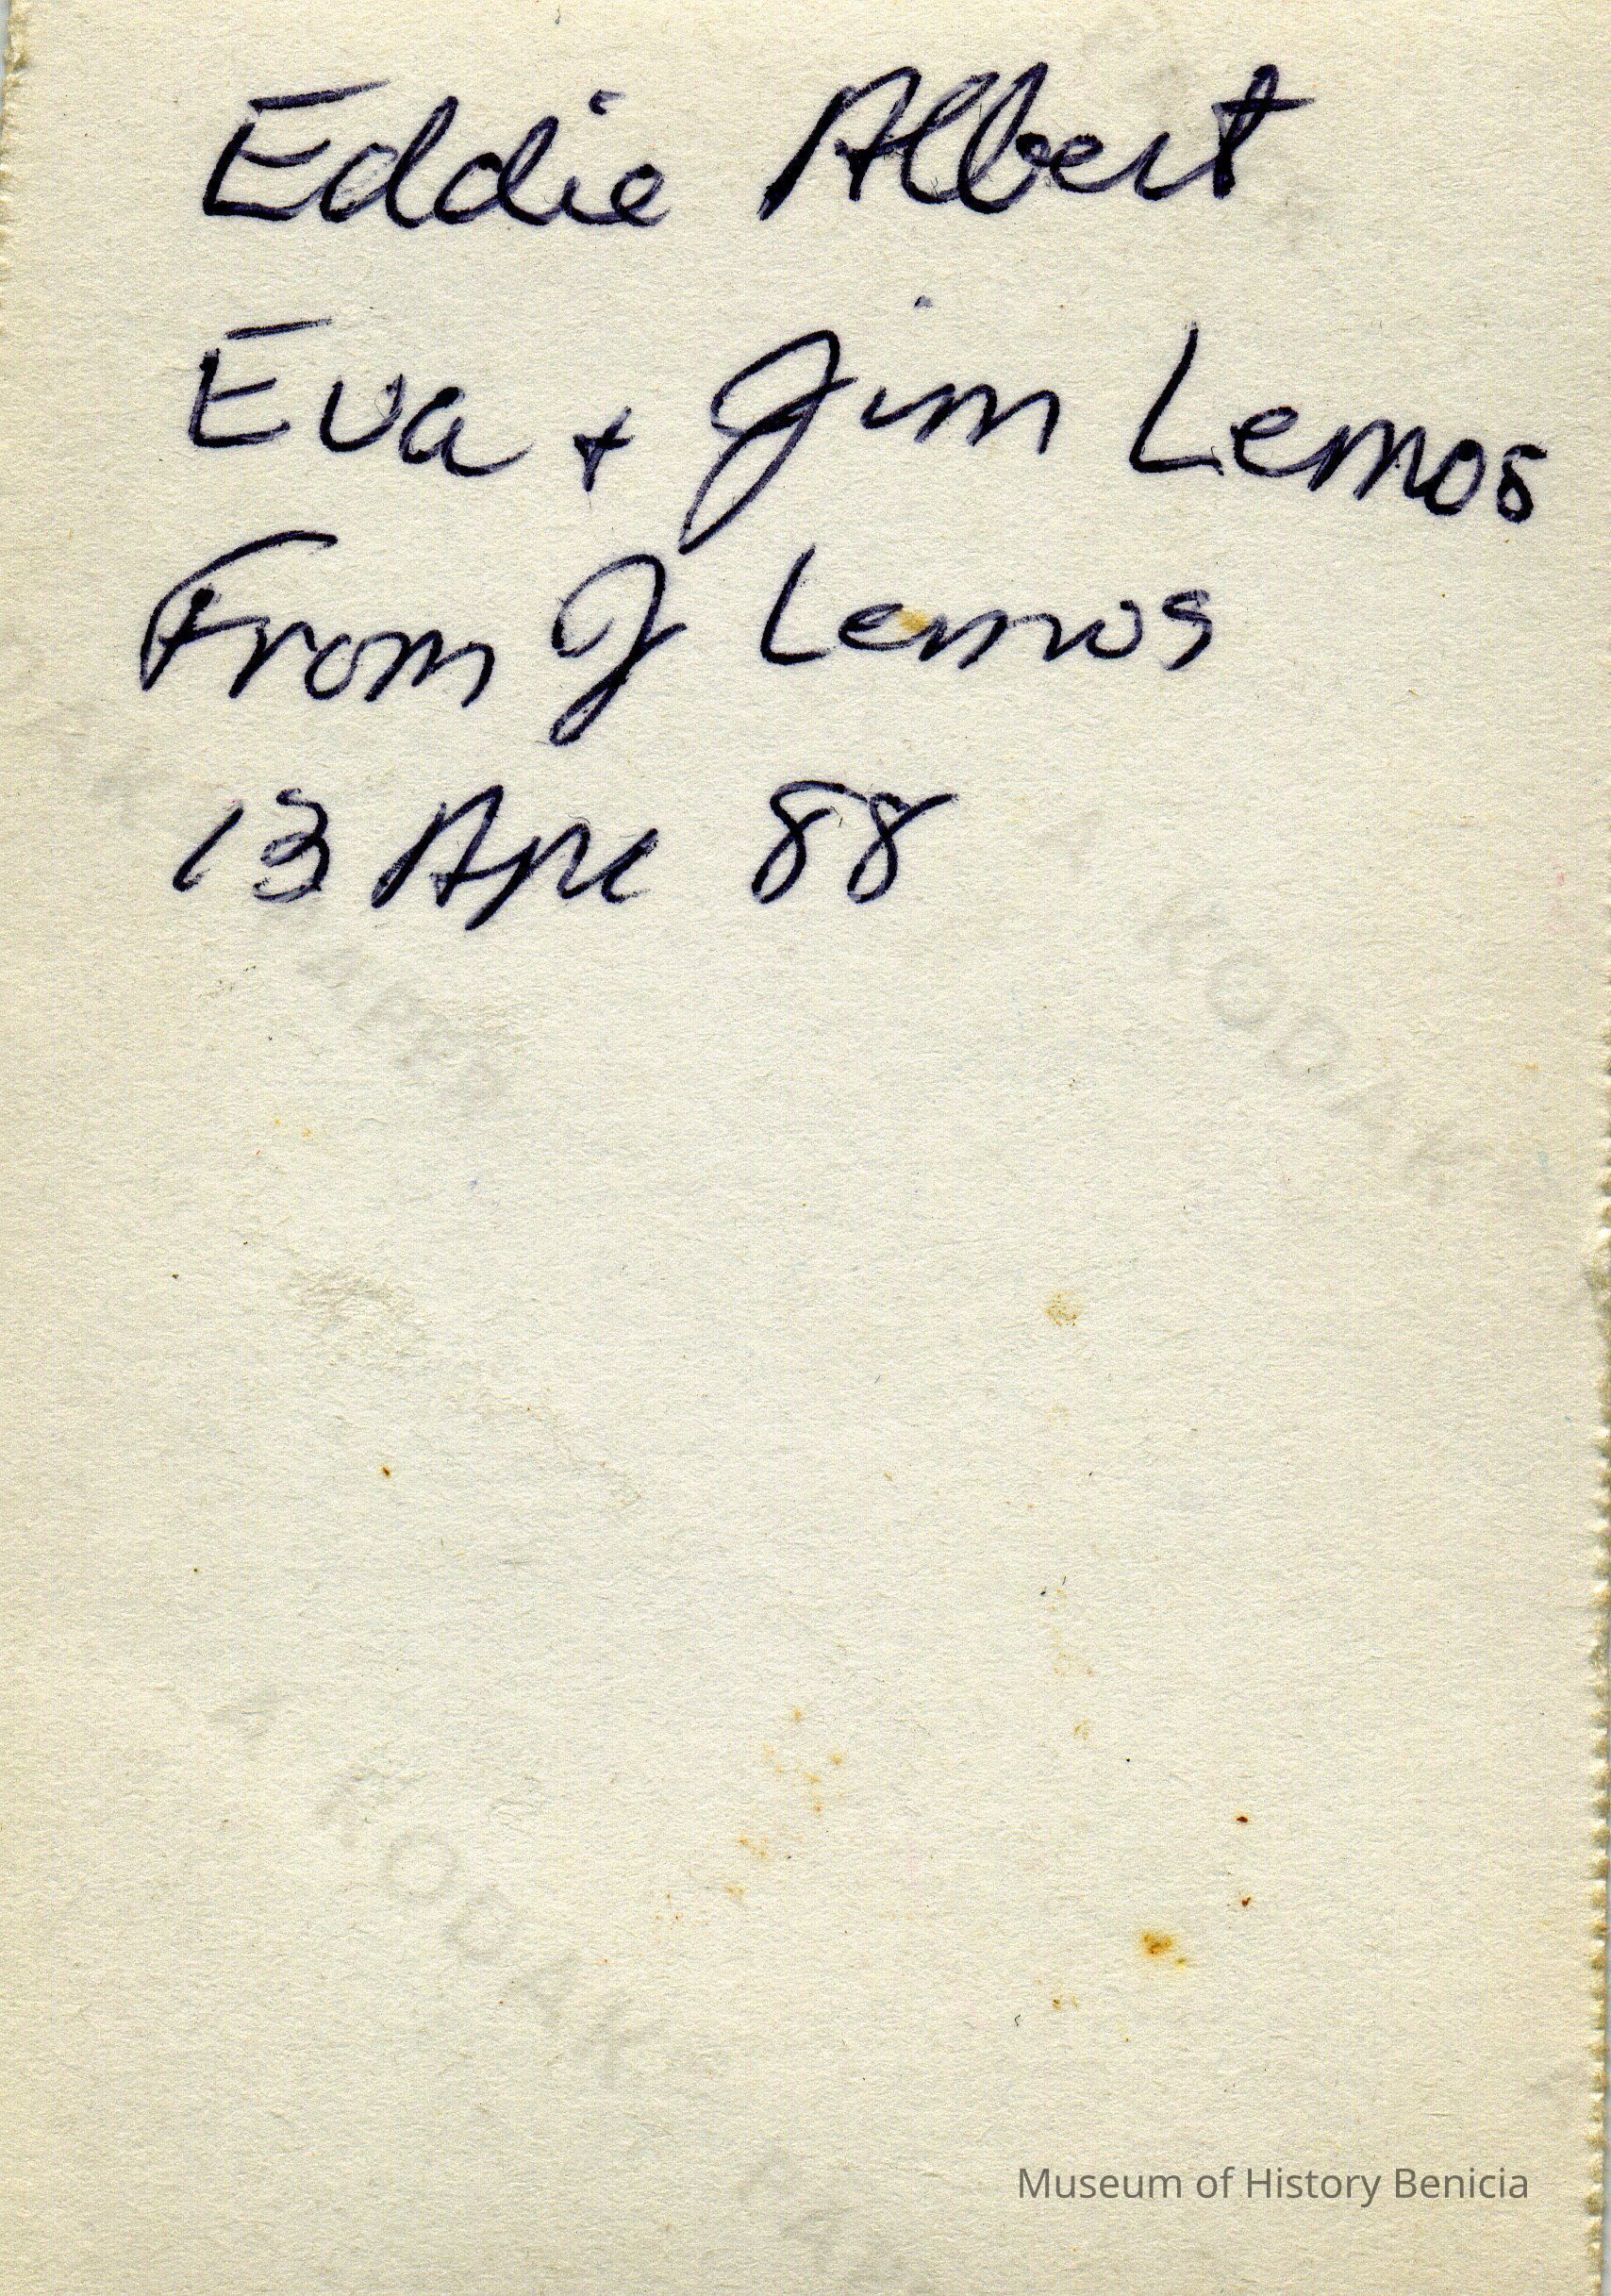 Eddie Albert
Eva + Jim Lemos
From J Lemos
13 Apr 88
KODAK
KODAK
Museum of History Benicia